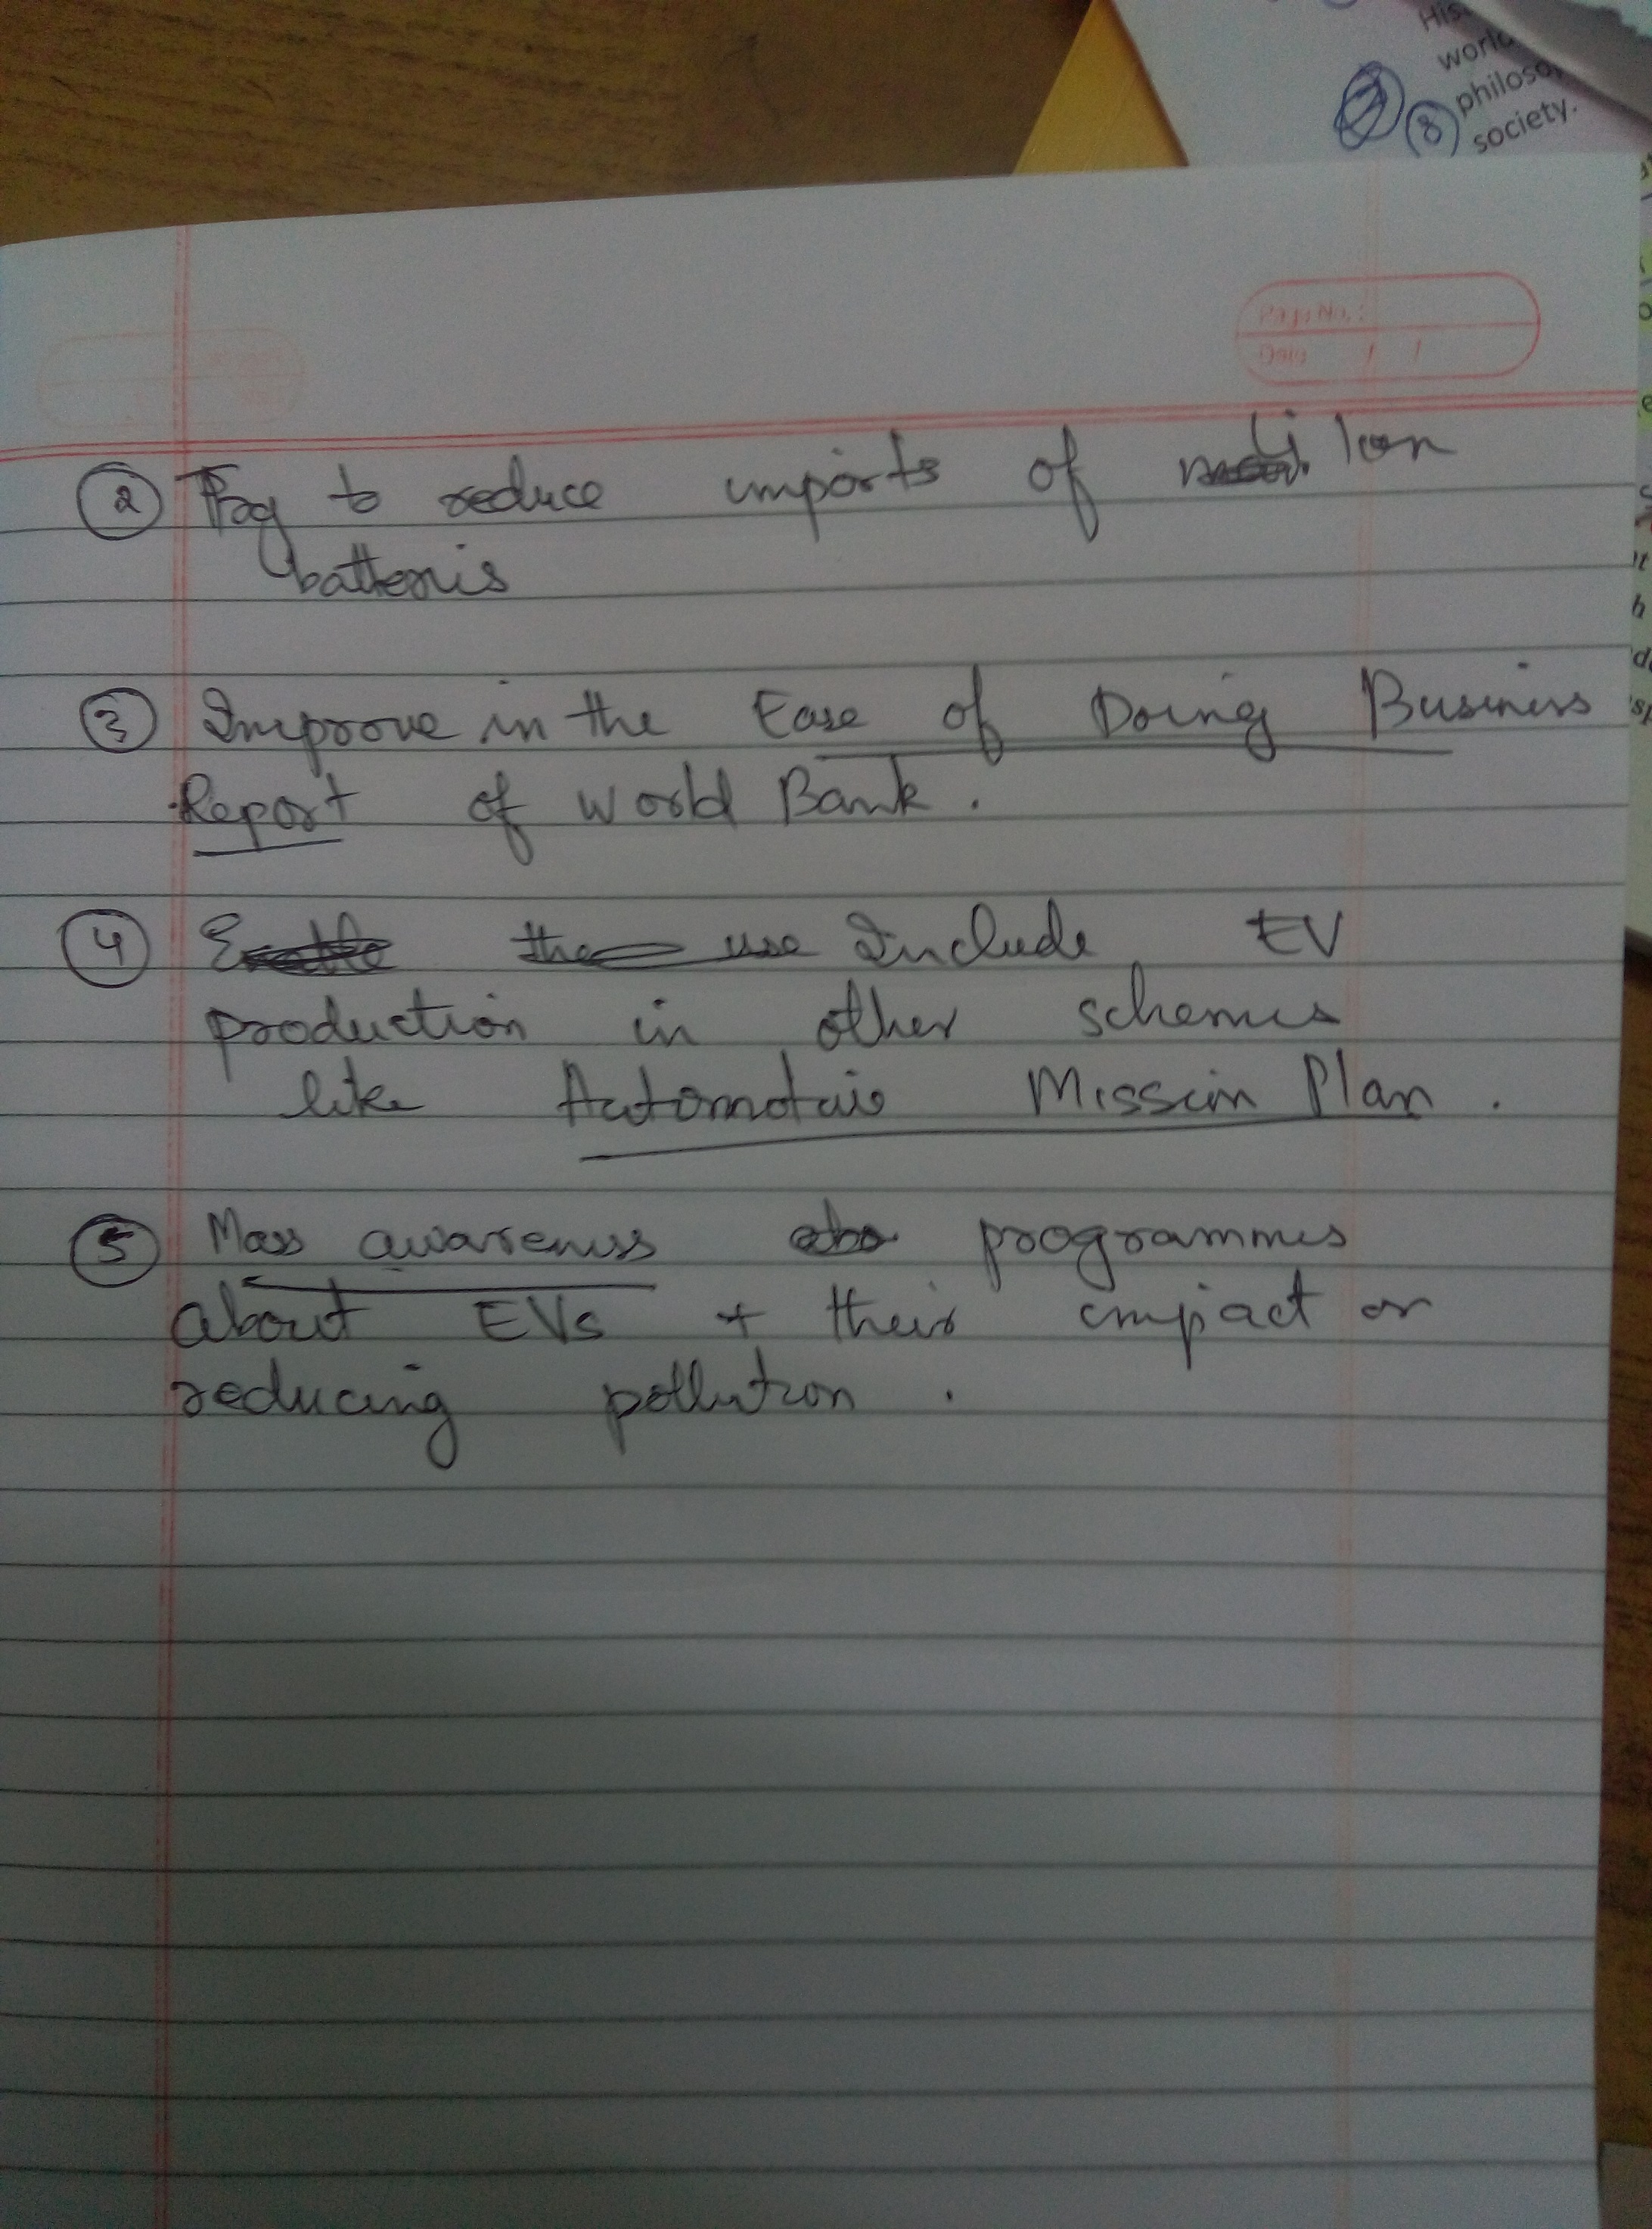 His
world
philoso
8 society.
Page No.:
Date / /
2 Try to reduce imports of Li Ion
batteris
3 Improve in the Ease of Doing Business
Report of World Bank.
4 the use Include EV
production in other schemes
like Automotive Mission Plan.
5 Mass awareness programmes
about EVs + their impact on
reducing pollution.